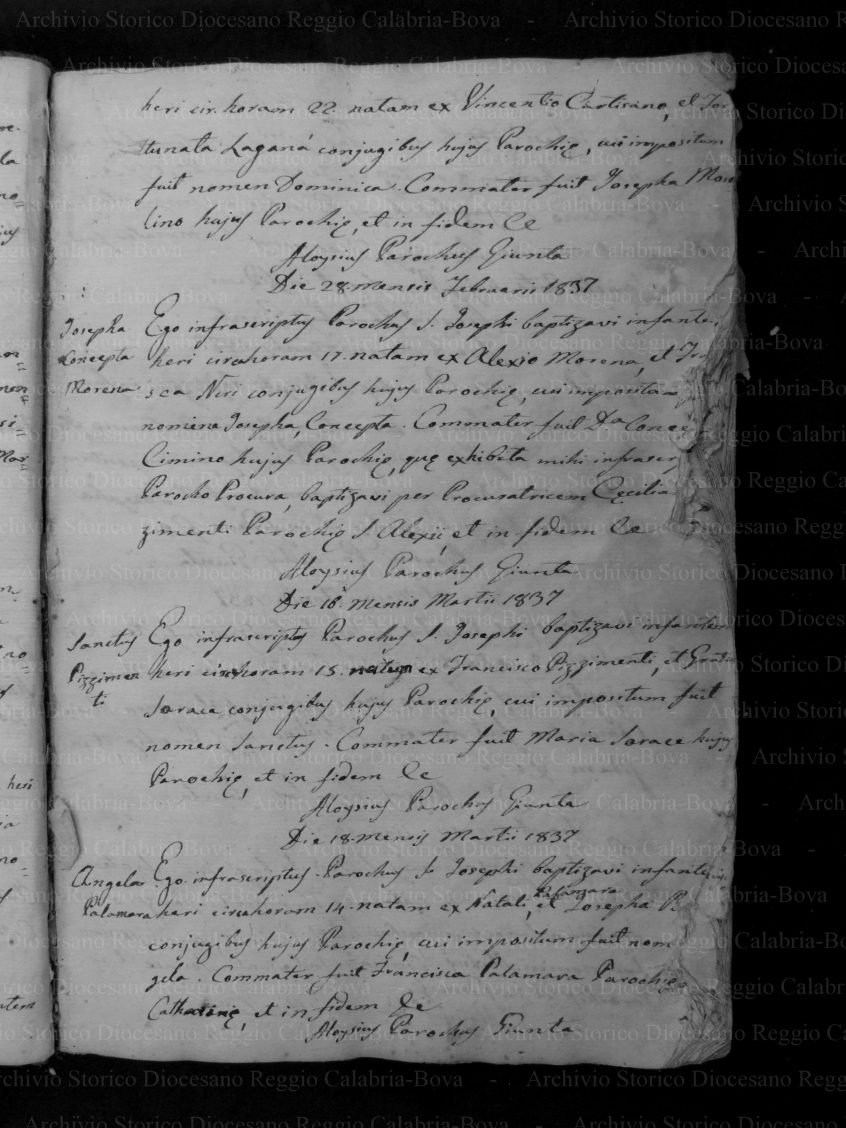 heri cir. horam 22. natam ex Vincentio Cartisano, et For
tunata Laganá conjugibus hujus Parochię, cui impositum
fuit nomen Dominica. Commater fuit Josepha Mose
lino hujus Parochię, et in fidem &c
Aloysius Parochus Giunta
Die 28 mensis Februarii 1837
Josepha
Concepta
Morena
Ego infrascriptus Parochus S. Josephi baptizavi infante
heri circa horam 17. natam ex Alexio Morena, et Fr
sca Neri conjugibus hujus Parochię, cui imposita
nomina Josepha, Concepta. Commater fuit Da. Conce
Cimino hujus Parochię, quę exhibita mihi infrascr
Parocho Procura, baptizavi per Procuratricem Cęcilia
zimenti Parochię S. Alexii, et in fidem &c
Aloysius Parochus Giunta
Die 18. mensis Martii 1837
Sanctus
Pizzimen
ti
Ego infrascriptus Parochus S. Josephi baptizavi infantem
heri circa horam 15. natum ex Francisco Pizzimenti, et
Sorace conjugibus hujus Parochię, cui impositum fuit
nomen Sanctus. Commater fuit Maria Sorace hujus
Parochię, et in fidem &c
Aloysius Parochus Giunta
Die 18. mensis Martii 1837
Angela
Palamara
Ego infrascriptus Parochus S. Josephi baptizavi infante
heri circa horam 14. natam ex Natali, et Josepha P.
conjugibus hujus Parochię, cui impositum fuit nom
gela. Commater fuit Francisca Palamara Parochię
Catharinę, et in fidem &c
Aloysius Parochus Giunta
Archivio Storico Diocesano Reggio Calabria-Bova